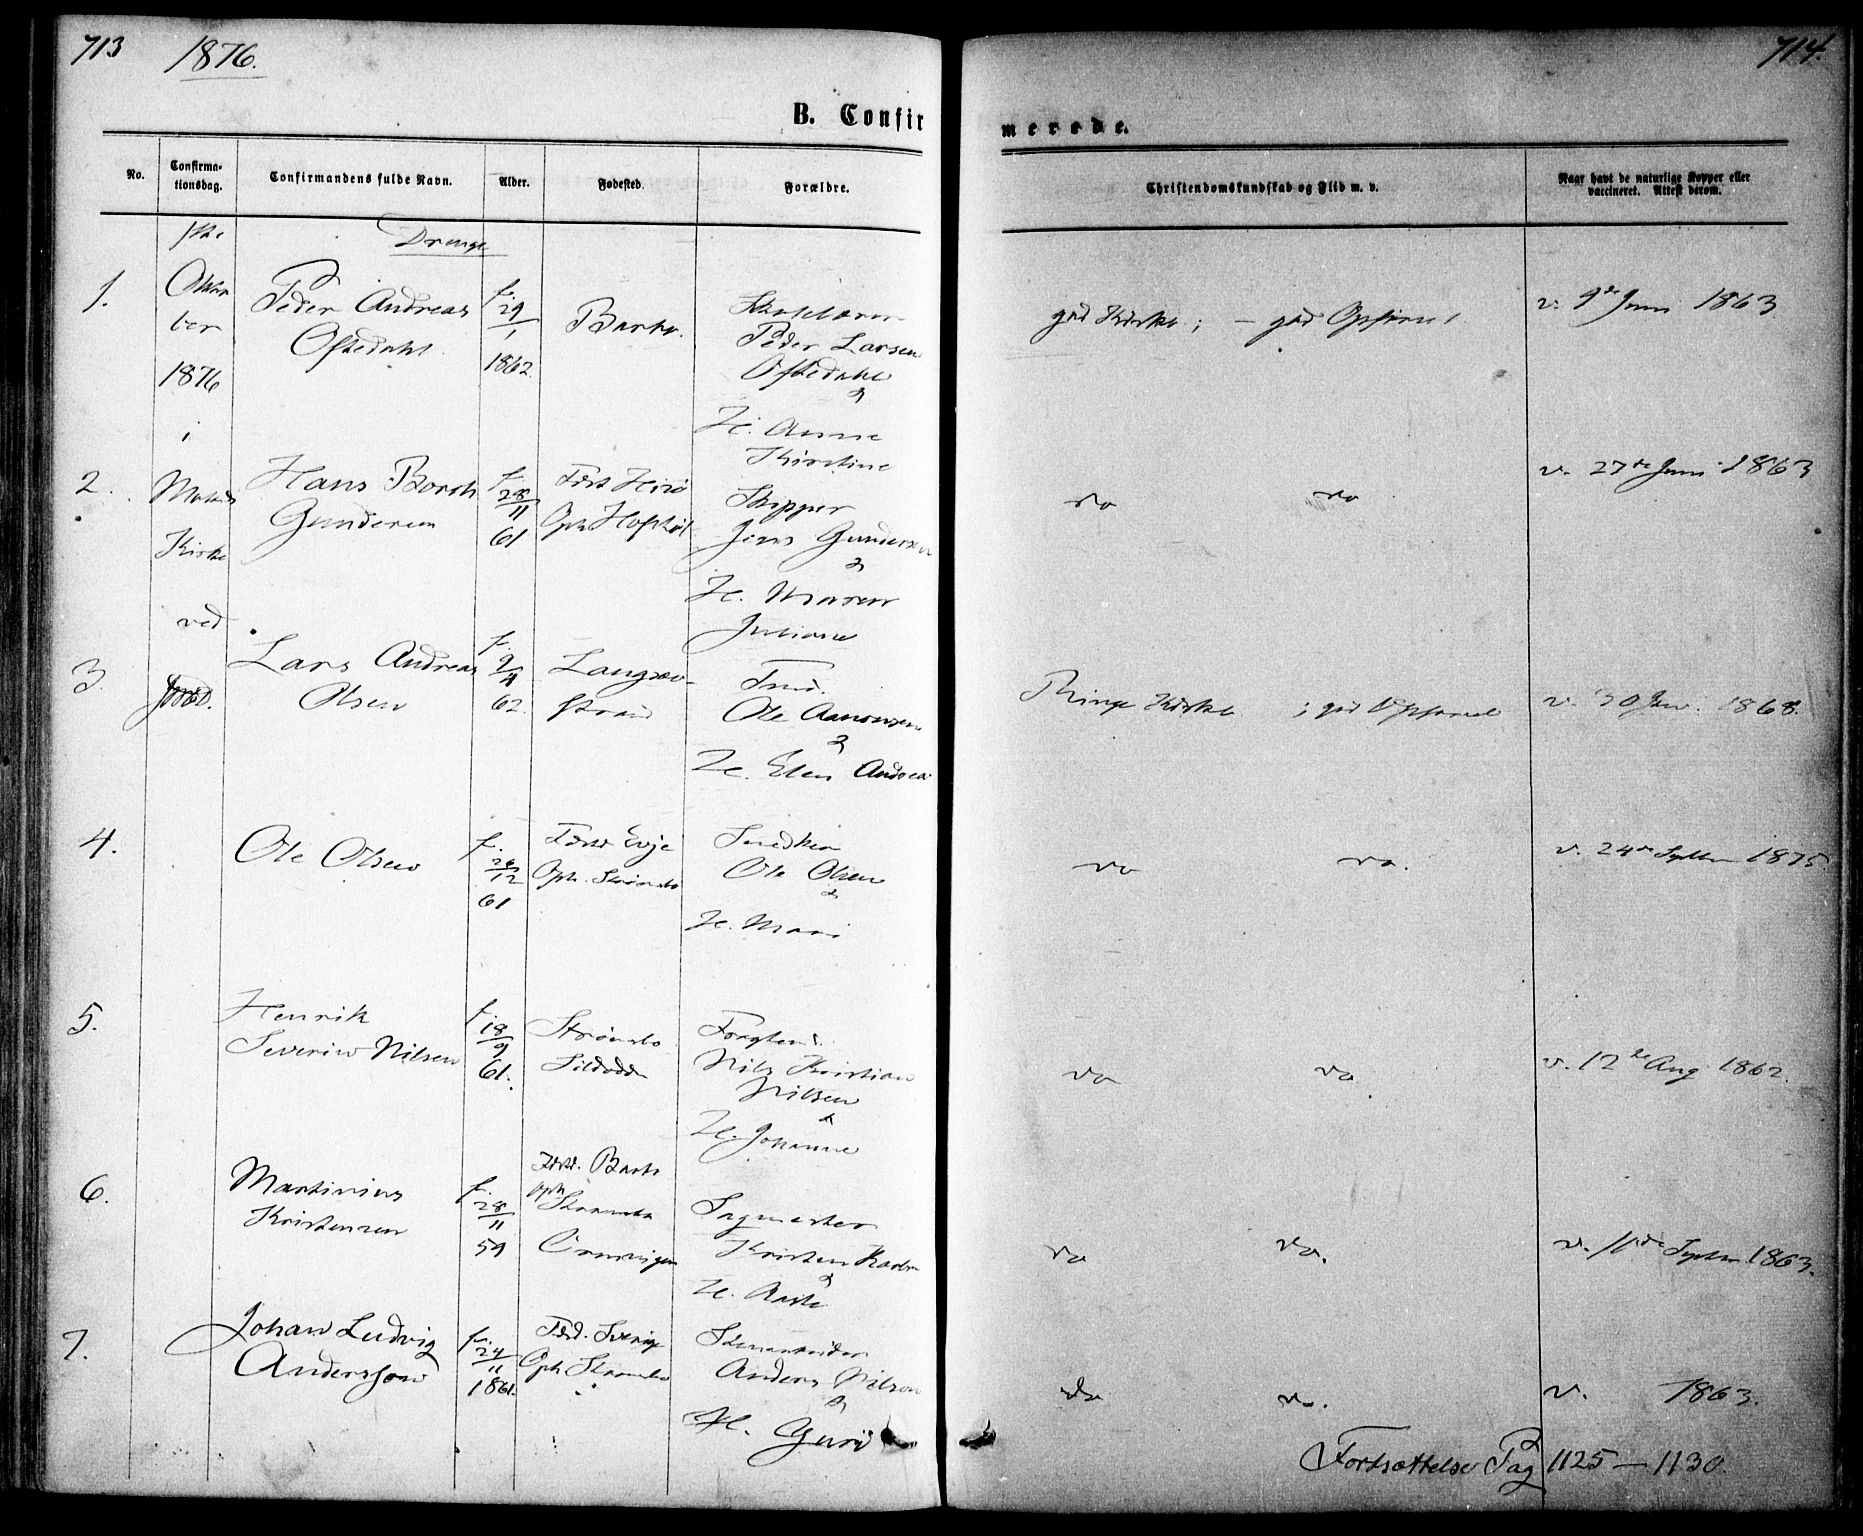 713
1876.
714.
B. Confirmerede.
No.
Confirmationsdag.
Confirmandens fulde Navn.
Alder.
Fødested.
Forældre.
Christendomskundskab og Flid m. v.
Naar havt de naturlige Kopper eller
vaccineret. Attest derom.
1ste
Oktober
1876
i
Kirke
ved
Drenge
1.
Peder Andreas
Oftedahl
f.
29/1
1862
Barbo.
Peder Larsen
Oftedahl
&
H. Anne
Kirstine
god Kdskb; – god Opførsel
v. 9de Juni 1863
2.
Hans Borch
Gundersen
f.
28/11
61
Skipper
Jens Gundersen
&
H. Maren
Juliane
do
do
v. 27de Juni 1863
3.
Lars Andreas
Olsen
f.
9/4
62
Langsæv-
strand
Ole Aanonsen
&
H. Elen Andrea
Ringe Kdskb ; god Opførsel
v. 30 Jan. 1868.
4.
Ole Olsen
f.
26/12
61
Født Evje
Oph. Strømsbo
Snedker
Ole Olsen
&
H. Mari
do
do.
v. 24de Septbr 1875.
5.
Henrik
Severin Nilsen
f.
18/9
61.
Strømsbo
Sildodden
Nils Kristian
Nilsen
&
H. Johanne
do
do
v. 12de Aug 1862.
6.
Martinius
Kristensen
f.
28/11
59
Fdst. Barbo
oph
Strømsbo
Sagmester
Kristen
&
H.
do
do.
v. 11de Septbr 1863.
7.
Johan Ludvig
Andersson
f.
24/11
1861.
Fød. Sverige
Oph Strømsbo
Stenarbeider
Anders Nilson
&
H. Guri
do
do.
v. 1863.
Fortsættelse Pag 1125 – 1130.